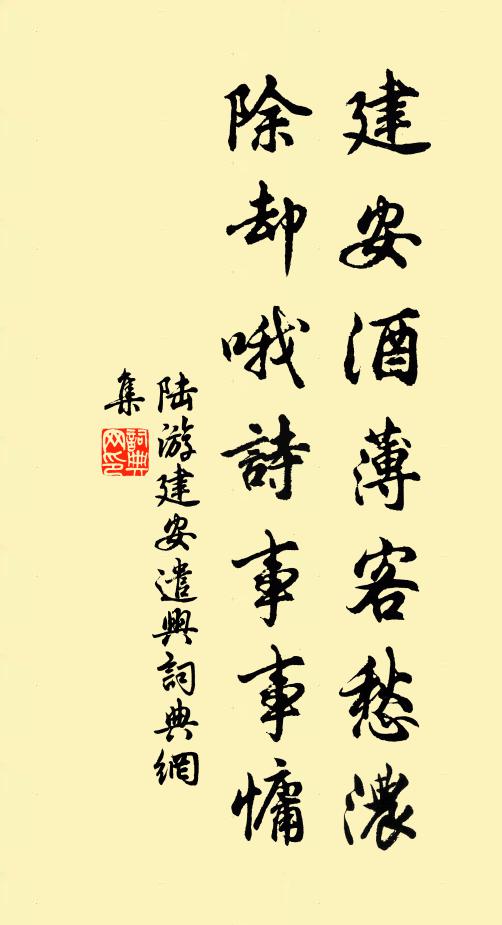 建安酒薄客愁濃
除却哦詩事事慵
陸游建安遣興詞典網
集
詞典網印